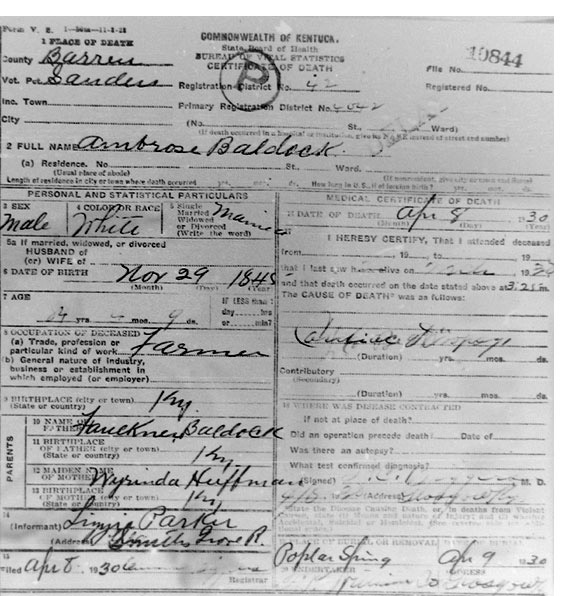 Form V. S. 1
COMMONWEALTH OF KENTUCK.
1 PLACE OF DEATH
State Board of Health
BUREAU OF VITAL STATISTICS
CERTIFICATE OF DEATH
County Barren
File No. 10844
Vot. Pct. Sanders
Registration District No. 42
Registered No.
Inc. Town
Primary Registration District No. 4042
City
(No. St., Ward)
(If death occurred in a hospital or institution, give its NAME instead of street and number)
2 FULL NAME Ambrose Baldock
(a) Residence. No. St., Ward.
(Usual place of abode)
(If nonresident, give city or town and State)
Length of residence in city or town where death occurred yrs. mos. ds.
How long in U.S., if of foreign birth? yrs. mos. ds.
PERSONAL AND STATISTICAL PARTICULARS
3 SEX
Male
4 COLOR OR RACE
White
5 Single
Married
Widowed
or Divorced
(Write the word)
Married
5a If married, widowed, or divorced
HUSBAND of
(or) WIFE of
6 DATE OF BIRTH Nov 29 1845
(Month) (Day) (Year)
7 AGE
84 yrs. mos. 9 ds.
IF LESS than 1
day hrs
or min?
8 OCCUPATION OF DECEASED
(a) Trade, profession or
particular kind of work Farmer
(b) General nature of industry,
business or establishment in
which employed (or employer)
9 BIRTHPLACE (city or town)
(State or country) Ky.
PARENTS
10 NAME OF
FATHER Faulkner Baldock
11 BIRTHPLACE
OF FATHER (city or town)
(State or country) Ky
12 MAIDEN NAME
OF MOTHER Wyrinda Huffman
13 BIRTHPLACE
OF MOTHER (city or town)
(State or country) Ky
14
(Informant) Lizzie Parker
(Address) Smiths Grove R.
15
Filed Apr 8, 1930
Registrar
MEDICAL CERTIFICATE OF DEATH
DATE OF DEATH Apr 8 1930
(Month) (Day) (Year)
I HEREBY CERTIFY, That I attended deceased
from 19 to 19
that I last saw h alive on 19
and that death occurred on the date stated above at 3.25 m.
The CAUSE OF DEATH* was as follows:
(Duration) yrs. mos. ds.
Contributory
(Secondary)
(Duration) yrs. mos. ds.
18 WHERE WAS DISEASE CONTRACTED
If not at place of death?
Did an operation precede death? Date of
Was there an autopsy?
What test confirmed diagnosis?
(Signed) M. D.
(Address) Glasgow Ky
PLACE OF BURIAL OR REMOVAL
Poplar Spring Apr 9 1930
UNDERTAKER ADDRESS
Glasgow